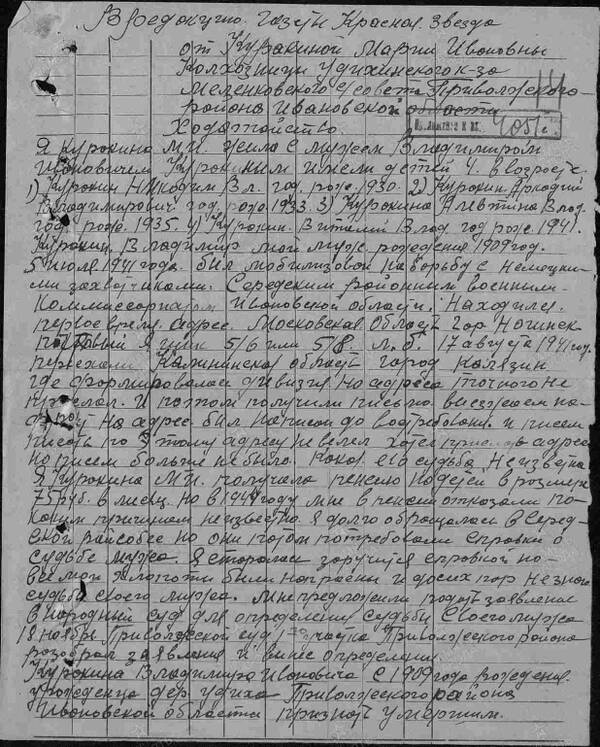 В Редакцию газеты Красная Звезда
от Куракиной Марии Ивановны
Колхозницы Удихинского к-за
Меленковского с/совета Приволжского
района Ивановской области
Ходатайство
4051с
Я Куракина М.И. жила с мужем Владимиром
Ивановичем Куракиным имели детей 4. в возрасте
1) Куракин Никодим Вл. год. рожд. 1930. 2) Куракин Аркадий
Владимирович год. рожд. 1933. 3) Куракина Алевтина Влад.
год. рожд. 1935. 4) Куракин. Виталий Влад. год рож. 1941.
Куракин. Владимир мой муж. рождения 1909 год.
5 июля 1941 года. был мобилизован на борьбу с немецки-
ми захватчиками. Середским районным военным-
Комиссариатом Ивановской области. Находился
первое время. адрес. Московская Область гор Ногинск
почтовый ящик 516 или 518. л. б. 17 августа 1941 год.
переехали Калининская область город Калязин
где формировалась дивизия но адреса точного не
прислал. И потом получили письмо выезжаем на-
фронт но адрес был написан до востребован. и писем
писать по этому адресу не велел хотел прислать адрес
но писем больше не было. Какая его судьба неизвестна
Я Куракина М.И. получала пенсию на детей в размере
75 руб. в месяц. но в 1944 году мне в пенсии отказали по-
каким причинам неизвестно. Я долго обращалась в Серед-
ской райсобес но они потом потребовали справки о
судьбе мужа. Я старалась заручится справкой но-
все мои хлопоты были напрасны и до сих пор не знаю
судьбы своего мужа. Мне предложили подать заявление
в народный суд для определения судьбы своего мужа
18 ноября Приволжской суд участка Приволжского района
разобрал заявления и вынес определения.
Куракина Владимира Ивановича с 1909 года рождения.
урожденца дер. Удиха Приволжского района
Ивановской области признать умершим.